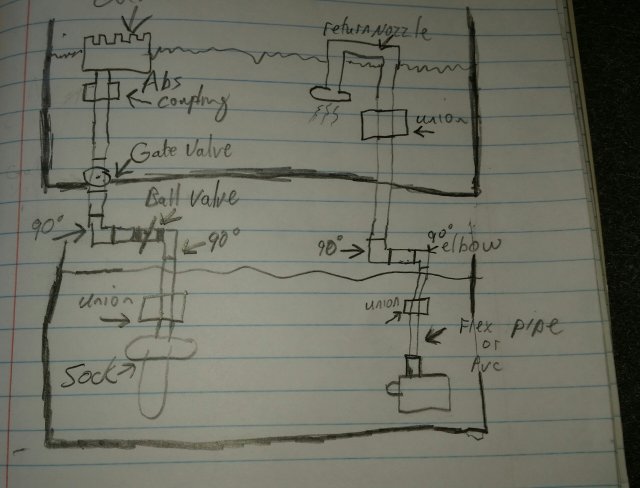 return Nozzle
Abs
coupling
union
Gate valve
Ball valve
90°
90°
90°
90°
elbow
union
union
Flex pipe
or
Pvc
Sock